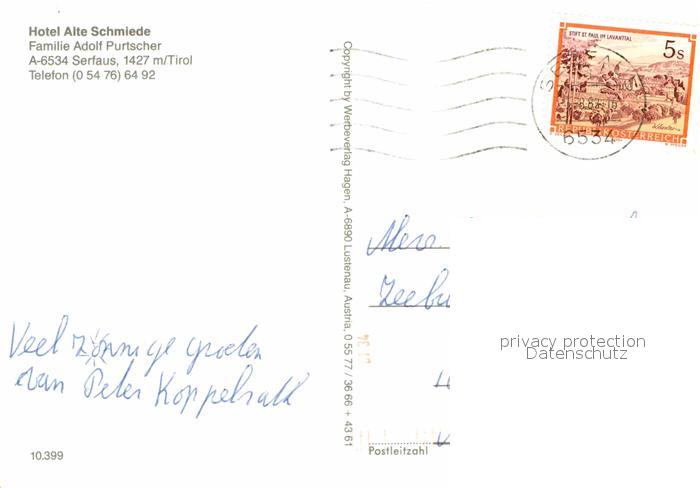 Hotel Alte Schmiede
Familie Adolf Purtscher
A-6534 Serfaus, 1427 m/Tirol
Telefon (0 54 76) 64 92
Copyright by Werbeverlag Hagen, A-6890 Lustenau, Austria, 0 55 77 / 36 66 + 43 61
STIFT ST. PAUL IM LAVANTTAL
5s
REPUBLIK ÖSTERREICH
6534
Zeebu
privacy protection
Datenschutz
Veel zonnige groeten
van Peter Koppelrath
Postleitzahl
10.399